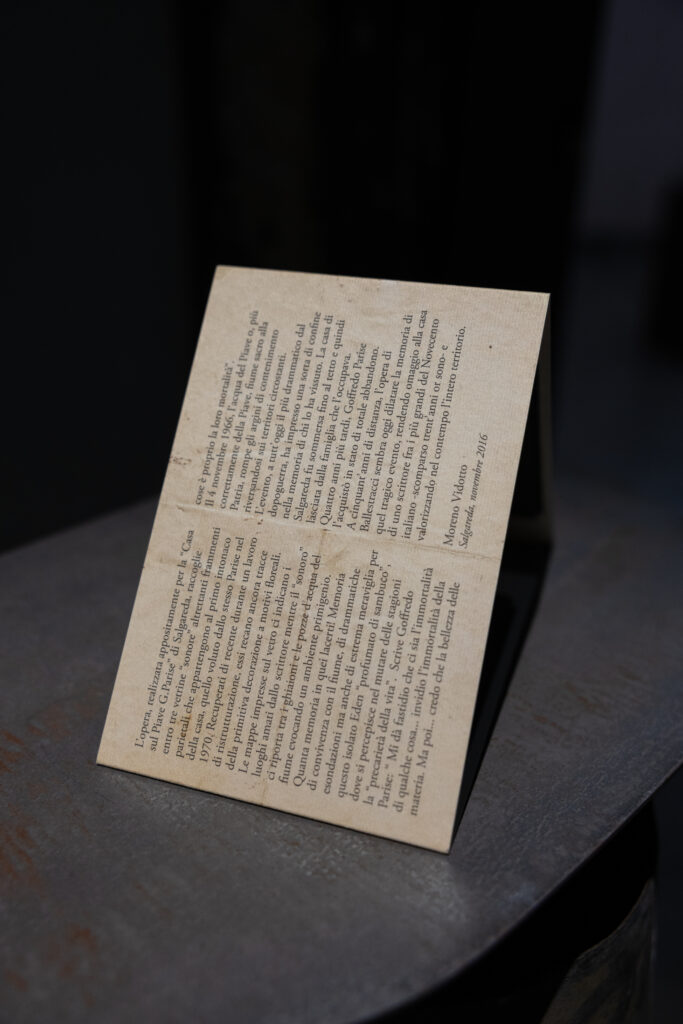 L'opera, realizzata appositamente per la "Casa
sul Piave G.Parise" di Salgareda, raccoglie
entro tre vetrine "sonore" altrettanti frammenti
parietali che appartengono al primo intonaco
della casa, quello voluto dallo stesso Parise nel
1970. Recuperati di recente durante un lavoro
di ristrutturazione, essi recano ancora tracce
della primitiva decorazione a motivi floreali.
Le mappe impresse sul vetro ci indicano i
luoghi amati dallo scrittore mentre il "sonoro"
ci riporta tra i ghiaioni e le pozze d'acqua del
fiume evocando un ambiente primigenio.
Quanta memoria in quei lacerti! Memoria
di convivenza con il fiume, di drammatiche
esondazioni ma anche di estrema meraviglia per
questo isolato Eden "profumato di sambuco",
dove si percepisce nel mutare delle stagioni
la "precarietà della vita". Scrive Goffredo
Parise: "Mi dà fastidio che ci sia l'immortalità
di qualche cosa... invidio l'immortalità della
materia. Ma poi... credo che la bellezza delle
cose è proprio la loro mortalità".
Il 4 novembre 1966, l'acqua del Piave o, più
correttamente della Piave, fiume sacro alla
Patria, rompe gli argini di contenimento
riversandosi sui territori circostanti.
L'evento, a tutt'oggi il più drammatico dal
dopoguerra, ha impresso una sorta di confine
nella memoria di chi lo ha vissuto. La casa di
Salgareda fu sommersa fino al tetto e quindi
lasciata dalla famiglia che l'occupava.
Quattro anni più tardi, Goffredo Parise
l'acquistò in stato di totale abbandono.
A cinquant'anni di distanza, l'opera di
Ballestracci sembra oggi dilatare la memoria di
quel tragico evento, rendendo omaggio alla casa
di uno scrittore fra i più grandi del Novecento
italiano -scomparso trent'anni or sono- e
valorizzando nel contempo l'intero territorio.
Moreno Vidotto
Salgareda, novembre 2016